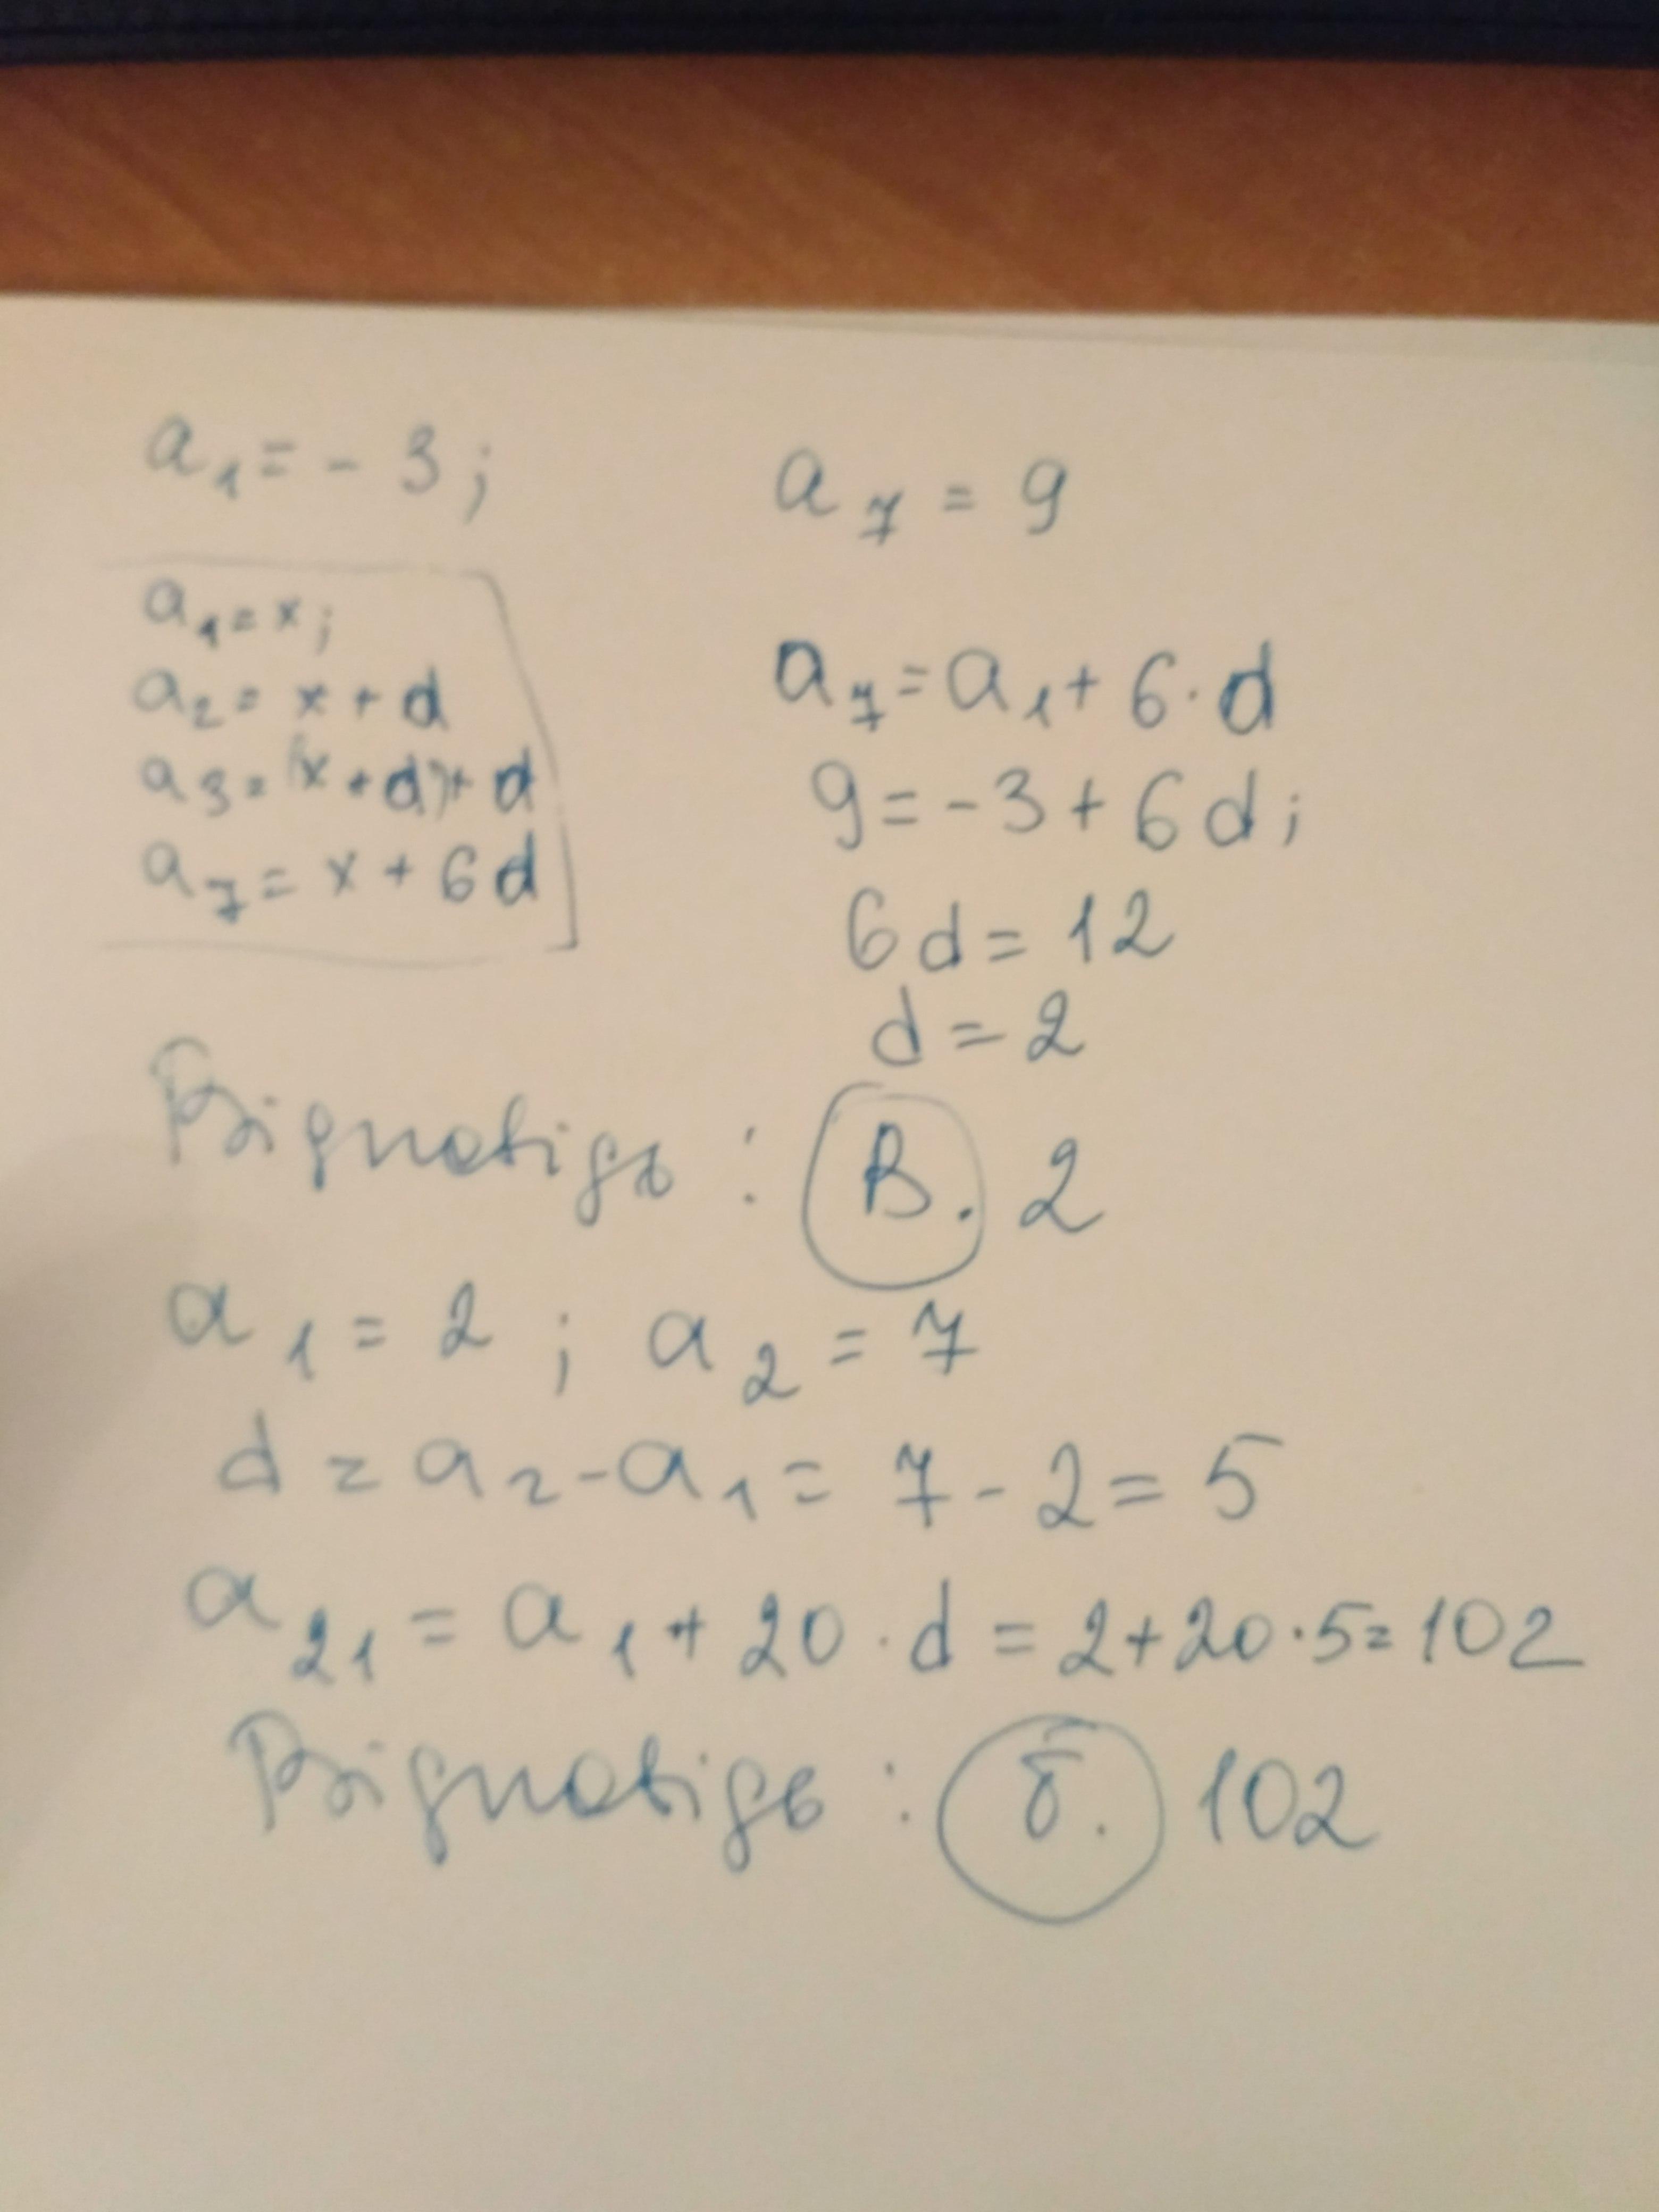 a₁ = - 3 ;
a₇ = 9
a₁ = x ;
a₂ = x + d
a₃ = (x + d) + d
a₇ = x + 6d
a₇ = a₁ + 6 · d
9 = - 3 + 6d ;
6d = 12
d = 2
Відповідь : В. 2
a₁ = 2 ; a₂ = 7
d = a₂ - a₁ = 7 - 2 = 5
a₂₁ = a₁ + 20 · d = 2 + 20 · 5 = 102
Відповідь : б. 102